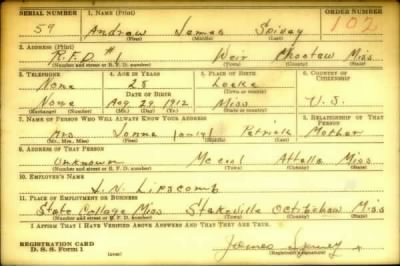 SERIAL NUMBER 1. NAME (Print) ORDER NUMBER
59 Andrew James Spivey 102
(First) (Middle) (Last)
2. ADDRESS (Print)
R.F.D. # 1 Weir Choctaw Miss
(Number and street or R. F. D. number) (Town) (County) (State)
3. TELEPHONE 4. AGE IN YEARS 5. PLACE OF BIRTH 6. COUNTRY OF CITIZENSHIP
None 28 Locke
DATE OF BIRTH (Town or county)
None Aug 29 1912 Miss U.S.
(Exchange) (Number) (Mo.) (Day) (Yr.) (State or country)
7. NAME OF PERSON WHO WILL ALWAYS KNOW YOUR ADDRESS 8. RELATIONSHIP OF THAT PERSON
Mrs Patrick Mother
(Mr., Mrs., Miss) (First) (Middle) (Last)
9. ADDRESS OF THAT PERSON
Unknown Attalla Miss
(Number and street or R. F. D. number) (Town) (County) (State)
10. EMPLOYER'S NAME
Lipscomb
11. PLACE OF EMPLOYMENT OR BUSINESS
State Collage Miss Starkville Miss
(Number and street or R. F. D. number) (Town) (County) (State)
I AFFIRM THAT I HAVE VERIFIED ABOVE ANSWERS AND THAT THEY ARE TRUE.
REGISTRATION CARD
D. S. S. Form 1 (over) James